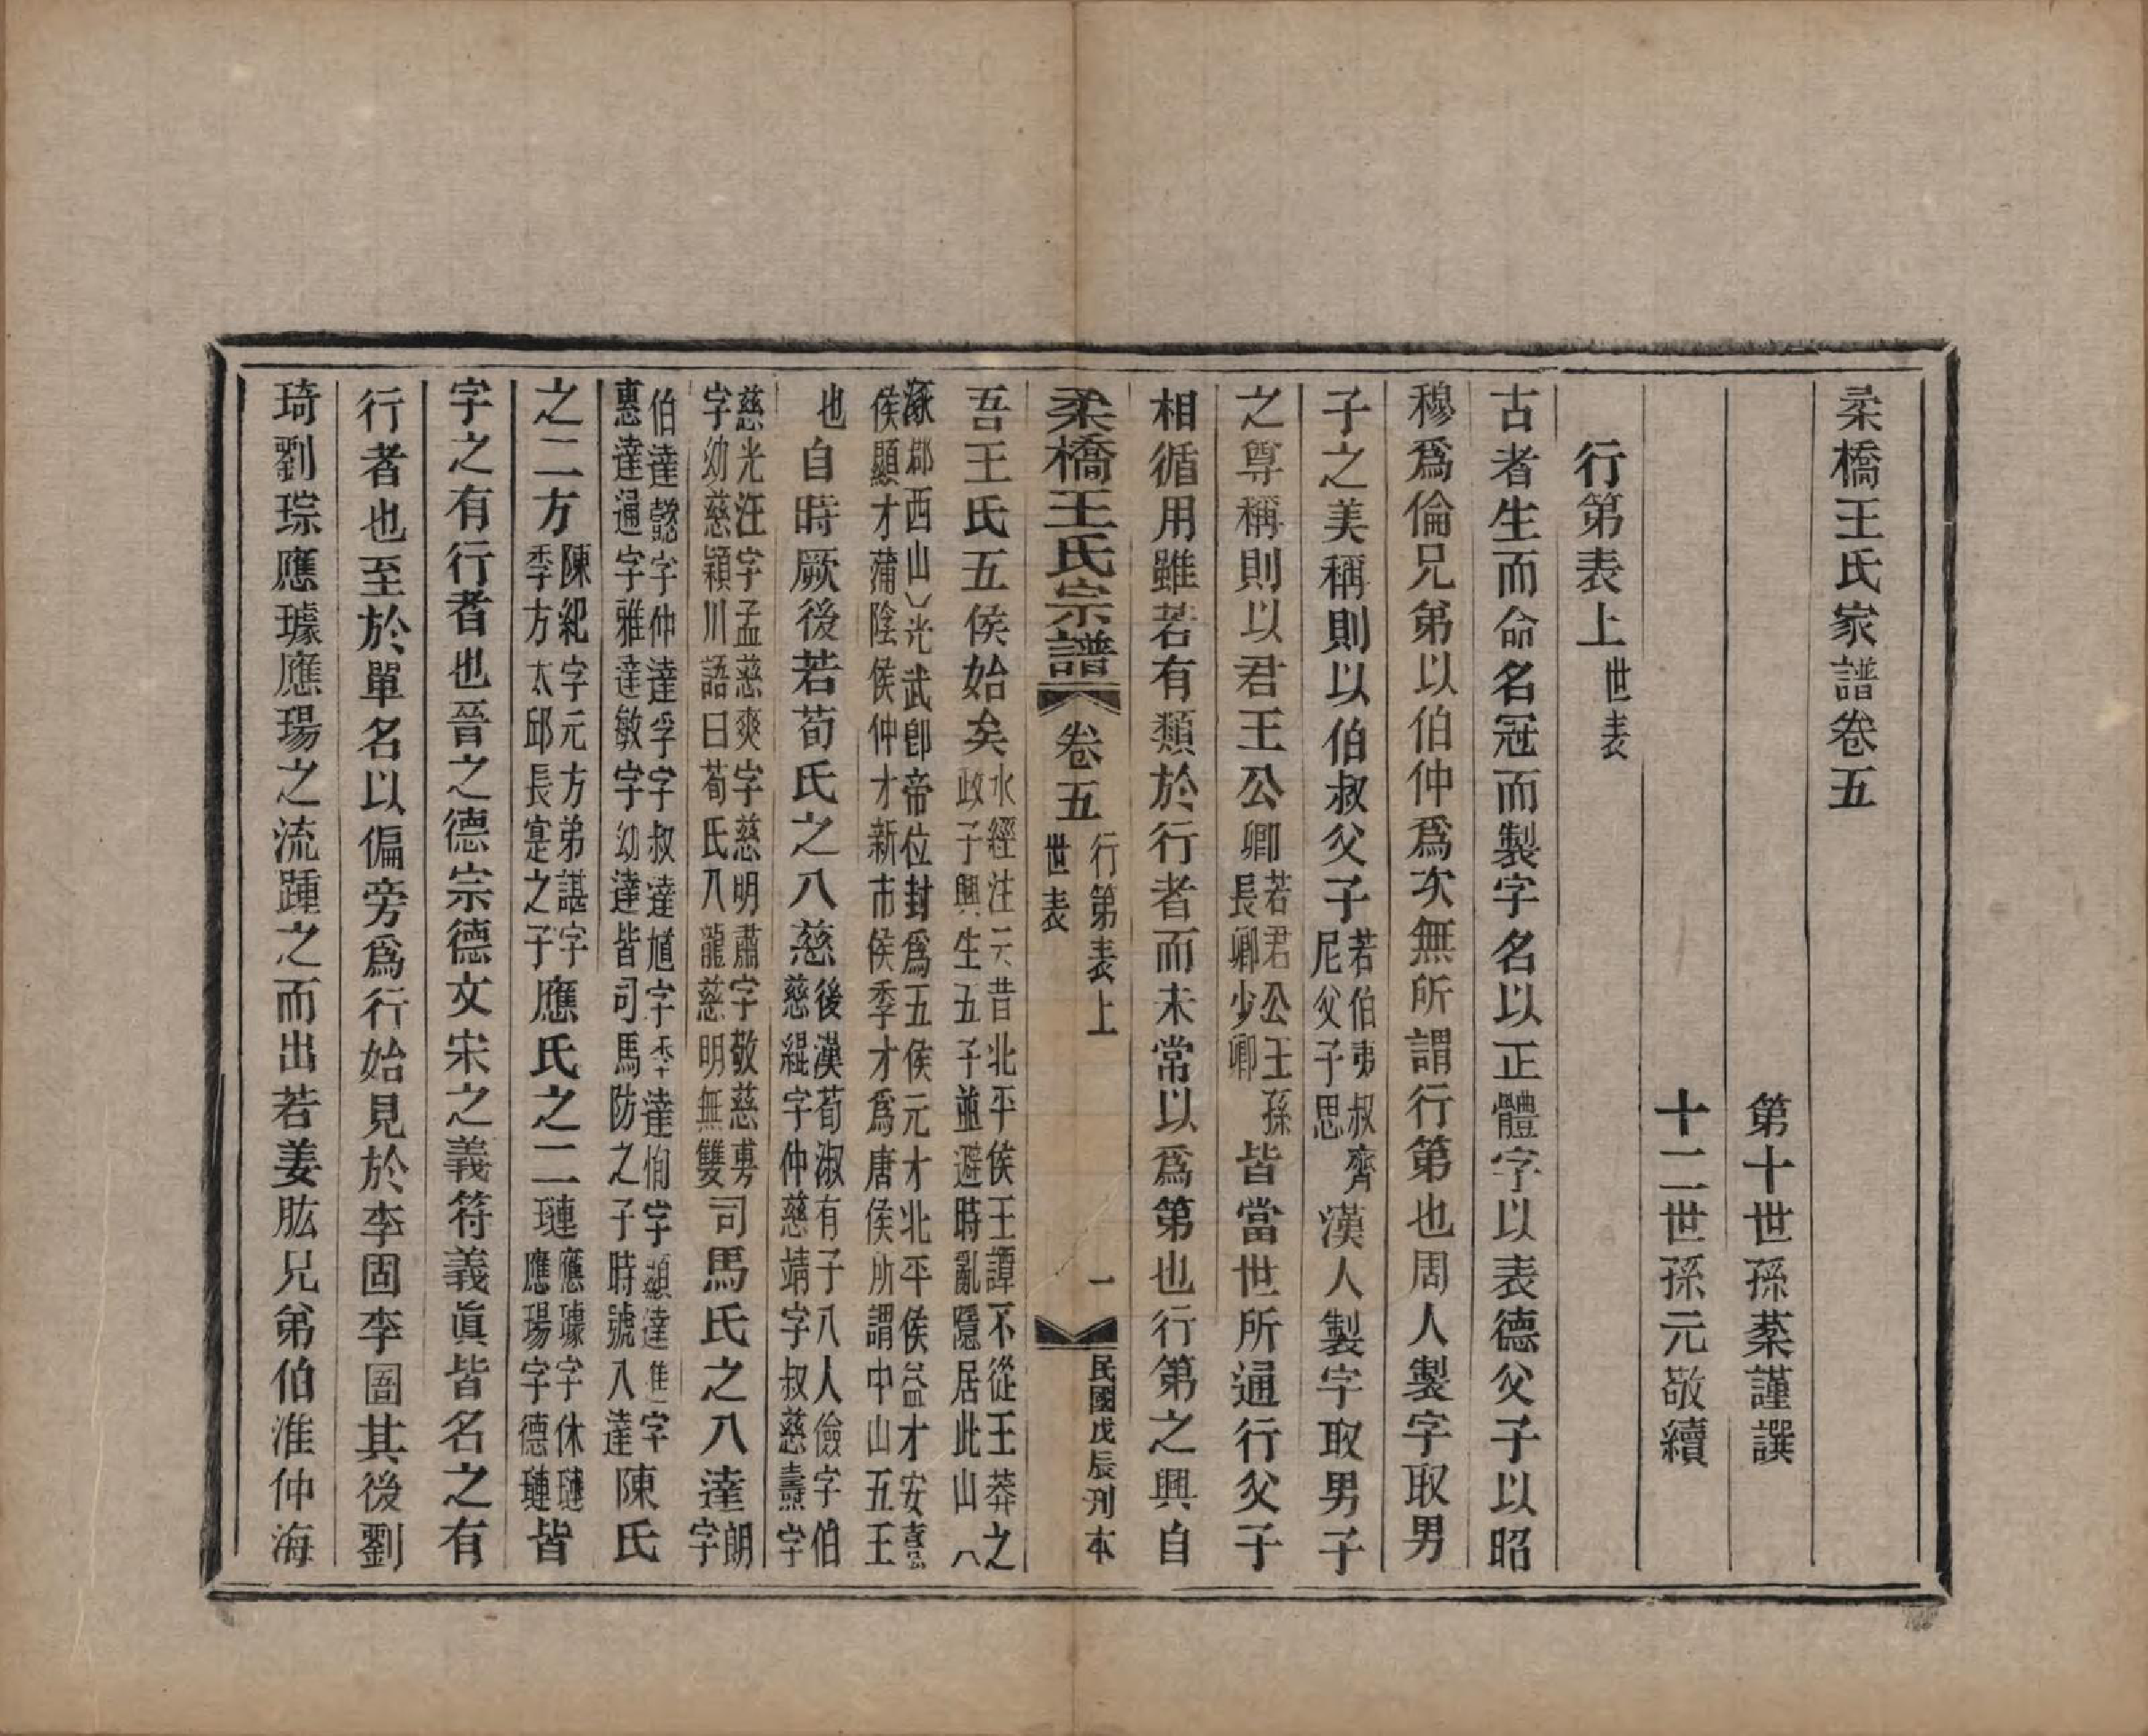 柔橋王氏家譜卷五
第十世孫棻謹譔
十二世孫元敬續
行第表上世表
古者生而命名冠而製字名以正體字以表德父子以昭
穆爲倫兄弟以伯仲爲次無所謂行第也周人製字取男
子之美稱則以伯叔父子若伯夷叔齊尼父子思漢人製字取男子
之尊稱則以君王公卿若君公王孫長卿少卿皆當世所通行父子
相循用雖若有類於行者而未常以爲第也行第之興自
柔橋王氏宗譜 卷五 行第表上世表 一 民國戊辰刊本
吾王氏五侯始矣水經注云昔北平侯王譚不從王莽之政子興生五子並避時亂隱居此山八
涿郡西山光武卽帝位封爲五侯元才北平侯益才安憙侯顯才蒲陰侯仲才新市侯季才爲唐侯所謂中山五王
也自時厥後若荀氏之八慈後漢荀淑有子八人儉字伯慈緄字仲慈靖字叔慈燾字
慈光汪字孟慈爽字慈明肅字敬慈旉字幼慈穎川語曰荀氏八龍慈明無雙司馬氏之八達朗字
伯達懿字仲達孚字叔達馗字季達恂字顯達進字惠達通字雅達敏字幼達皆司馬防之子時號八達陳氏
之二方陳紀字元方弟諶字季方太邱長寔之子應氏之二璉應璩字休璉應瑒字德璉皆
字之有行者也晉之德宗德文宋之義符義眞皆名之有
行者也至於單名以偏旁爲行始見於李固李圄其後劉
琦劉琮應璩應瑒之流踵之而出若姜肱兄弟伯淮仲海